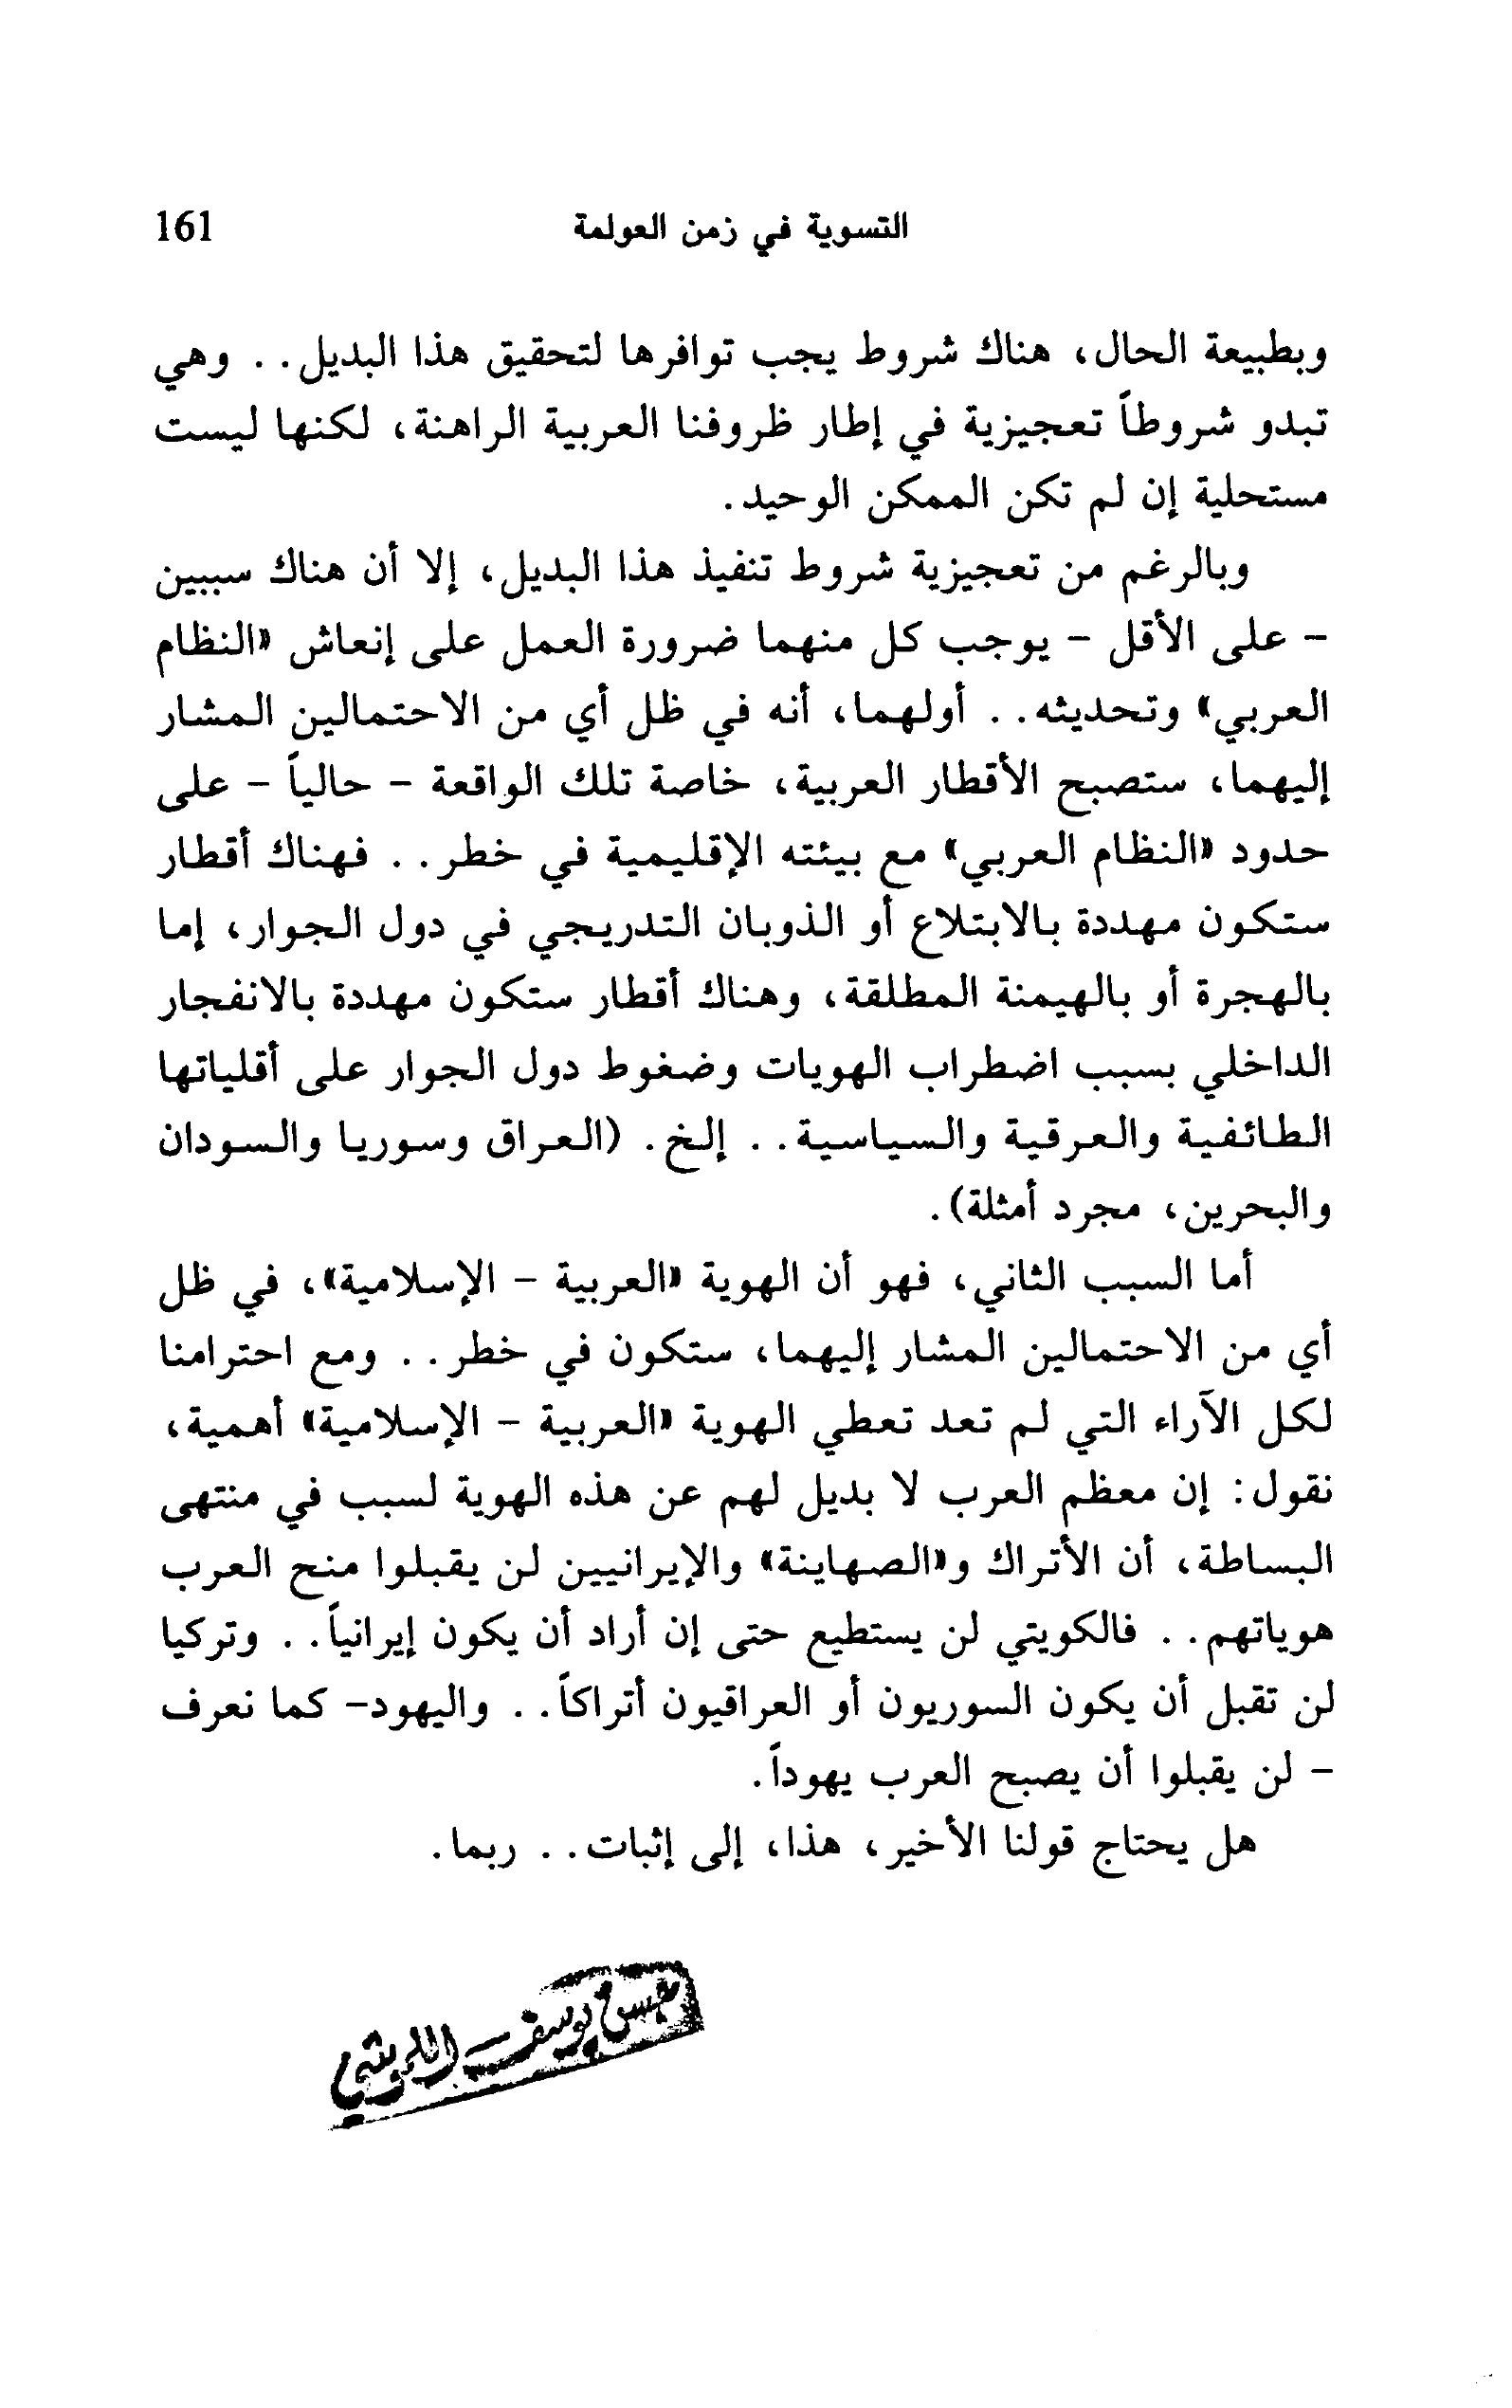 التسوية في زمن العولمة 161
وبطبيعة الحال، هناك شروط يجب توافرها لتحقيق هذا البديل. . وهي
تبدو شروطاً تعجيزية في إطار ظروفنا العربية الراهنة، لكنها ليست
مستحلية إن لم تكن الممكن الوحيد.
وبالرغم من تعجيزية شروط تنفيذ هذا البديل، إلا أن هناك سببين
- على الأقل - يوجب كل منهما ضرورة العمل على إنعاش «النظام
العربي» وتحديثه. . أولهما، أنه في ظل أي من الاحتمالين المشار
إليهما، ستصبح الأقطار العربية، خاصة تلك الواقعة - حالياً - على
حدود «النظام العربي» مع بيئته الإقليمية في خطر. . فهناك أقطار
ستكون مهددة بالابتلاع أو الذوبان التدريجي في دول الجوار، إما
بالهجرة أو بالهيمنة المطلقة، وهناك أقطار ستكون مهددة بالانفجار
الداخلي بسبب اضطراب الهويات وضغوط دول الجوار على أقلياتها
الطائفية والعرقية والسياسية. . إلخ. (العراق وسوريا والسودان
والبحرين، مجرد أمثلة).
أما السبب الثاني، فهو أن الهوية «العربية - الإسلامية»، في ظل
أي من الاحتمالين المشار إليهما، ستكون في خطر. . ومع احترامنا
لكل الآراء التي لم تعد تعطي الهوية «العربية - الإسلامية» أهمية،
نقول: إن معظم العرب لا بديل لهم عن هذه الهوية لسبب في منتهى
البساطة، أن الأتراك و«الصهاينة» والإيرانيين لن يقبلوا منح العرب
هوياتهم. . فالكويتي لن يستطيع حتى إن أراد أن يكون إيرانياً. . وتركيا
لن تقبل أن يكون السوريون أو العراقيون أتراكاً. . واليهود- كما نعرف
- لن يقبلوا أن يصبح العرب يهوداً.
هل يحتاج قولنا الأخير، هذا، إلى إثبات. . ربما.
يوسف